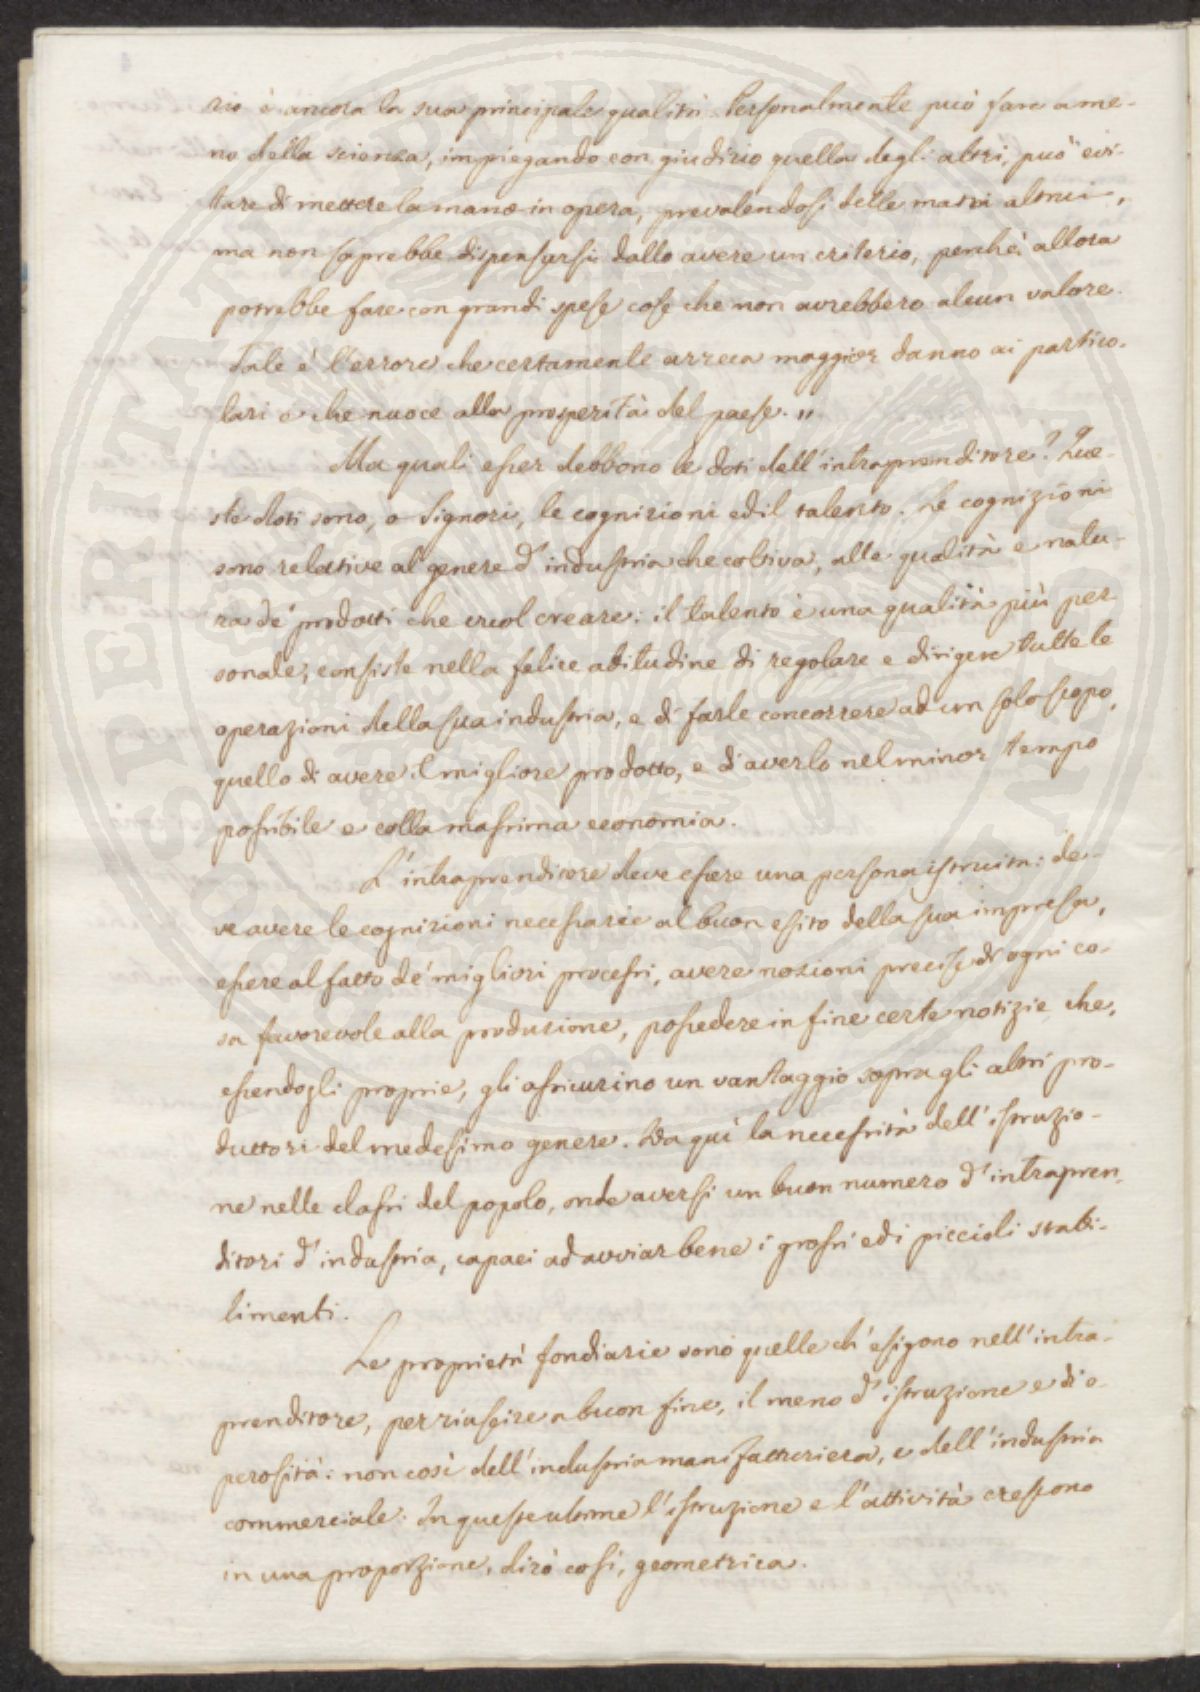 rio è ancora la sua principale qualità. Personalmente può fare a me-
no della scienza, impiegando con giudizio quella degli altri, può evi-
tare di mettere la mano in opera, prevalendosi delle mani altrui,
ma non saprebbe dispensarsi dallo avere un criterio, perchè allora
potrebbe fare con grandi spese cose che non avrebbero alcun valore.
Tale è l'errore che certamente arreca maggior danno ai partico-
lari e che nuoce alla prosperità del paese.„
Ma quali esser debbono le doti dell'intraprenditore? Que-
ste doti sono, o Signori, le cognizioni ed il talento. Le cognizioni
sono relative al genere d'industria che coltiva, alle qualità e natu-
ra de' prodotti che vuol creare: il talento è una qualità più per
sonale; consiste nella felice abitudine di regolare e dirigere tutte le
operazioni della sua industria, e di farle concorrere ad un solo scopo,
quello di avere il migliore prodotto, e d'averlo nel minor tempo
possibile e colla massima economia.
L'intraprenditore deve essere una persona istruita: de-
ve avere le cognizioni necessarie al buon esito della sua impresa,
essere al fatto de' migliori processi, avere nozioni precise di ogni co-
sa favorevole alla produzione, possedere in fine certe notizie che,
essendogli proprie, gli assicurino un vantaggio sopra gli altri pro-
duttori del medesimo genere. Da qui la necessità dell'istruzio-
ne nelle classi del popolo, onde aversi un buon numero d'intrapren-
ditori d'industria, capaci ad avviar bene i grossi ed i piccioli stabi-
limenti.
Le proprietà fondiarie sono quelle ch'esigono nell'intra-
prenditore, per riuscire a buon fine, il meno d'istruzione e di o-
perosità: non così dell'industria manifatturiera, e dell'industria
commerciale. In queste ultime l'istruzione e l'attività crescono
in una proporzione, dirò così, geometrica.
PROSPERITATI PUBLICAE